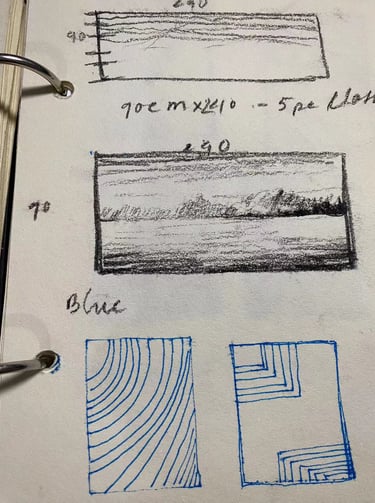 290
90
90cm x 290 - 5 pc
290
90
Blue